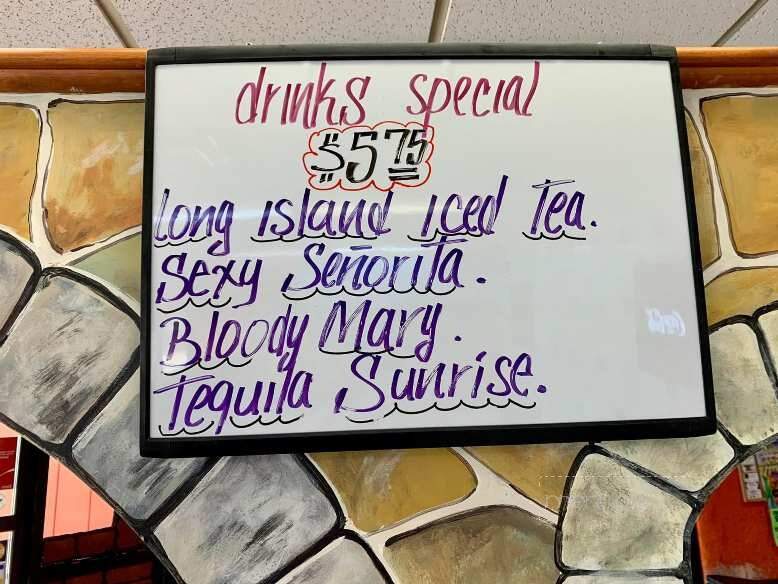 drinks special
$5.75
Long Island Iced Tea.
Sexy Señorita.
Bloody Mary.
Tequila Sunrise.